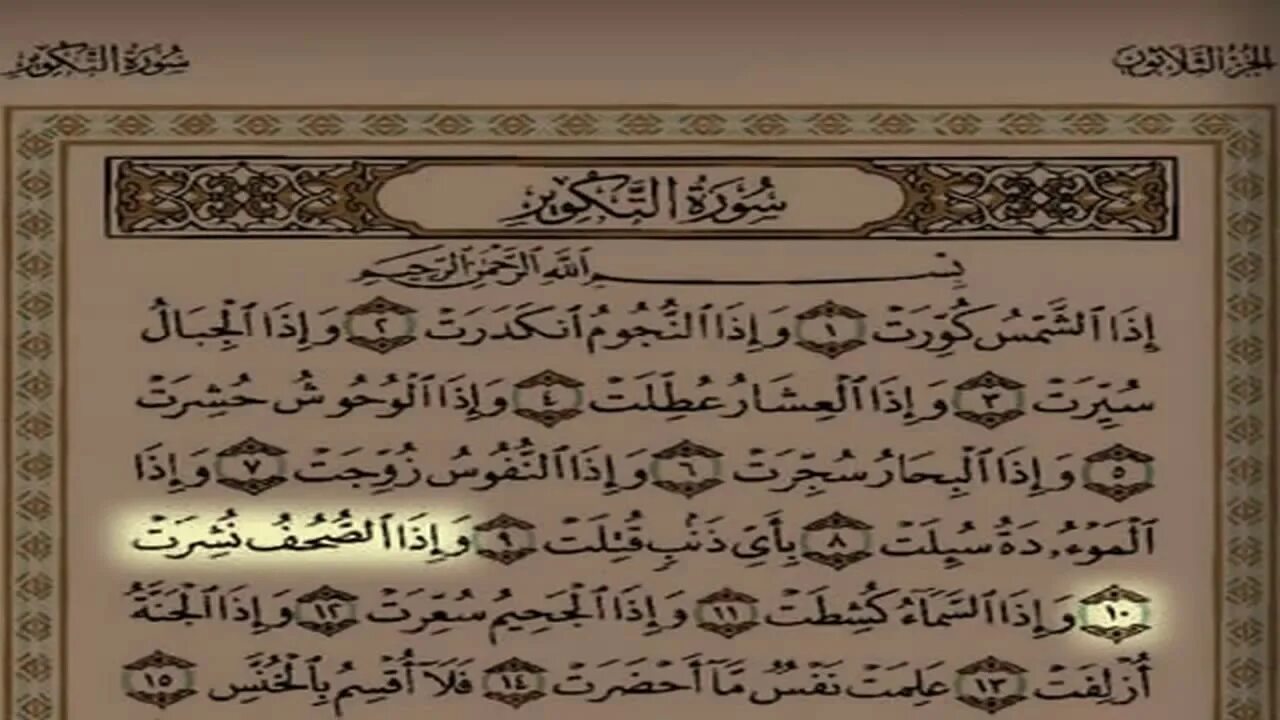 الجزء الثلاثون
سورة التكوير
سُورَةُ التَّكْوِيرِ
بِسْمِ ٱللَّهِ ٱلرَّحْمَٰنِ ٱلرَّحِيمِ
إِذَا ٱلشَّمْسُ كُوِّرَتْ ١ وَإِذَا ٱلنُّجُومُ ٱنكَدَرَتْ ٢ وَإِذَا ٱلْجِبَالُ
سُيِّرَتْ ٣ وَإِذَا ٱلْعِشَارُ عُطِّلَتْ ٤ وَإِذَا ٱلْوُحُوشُ حُشِرَتْ
٥ وَإِذَا ٱلْبِحَارُ سُجِّرَتْ ٦ وَإِذَا ٱلنُّفُوسُ زُوِّجَتْ ٧ وَإِذَا
ٱلْمَوْءُۥدَةُ سُئِلَتْ ٨ بِأَىِّ ذَنۢبٍ قُتِلَتْ ٩ وَإِذَا ٱلصُّحُفُ نُشِرَتْ
١٠ وَإِذَا ٱلسَّمَآءُ كُشِطَتْ ١١ وَإِذَا ٱلْجَحِيمُ سُعِّرَتْ ١٢ وَإِذَا ٱلْجَنَّةُ
أُزْلِفَتْ ١٣ عَلِمَتْ نَفْسٌ مَّآ أَحْضَرَتْ ١٤ فَلَآ أُقْسِمُ بِٱلْخُنَّسِ ١٥